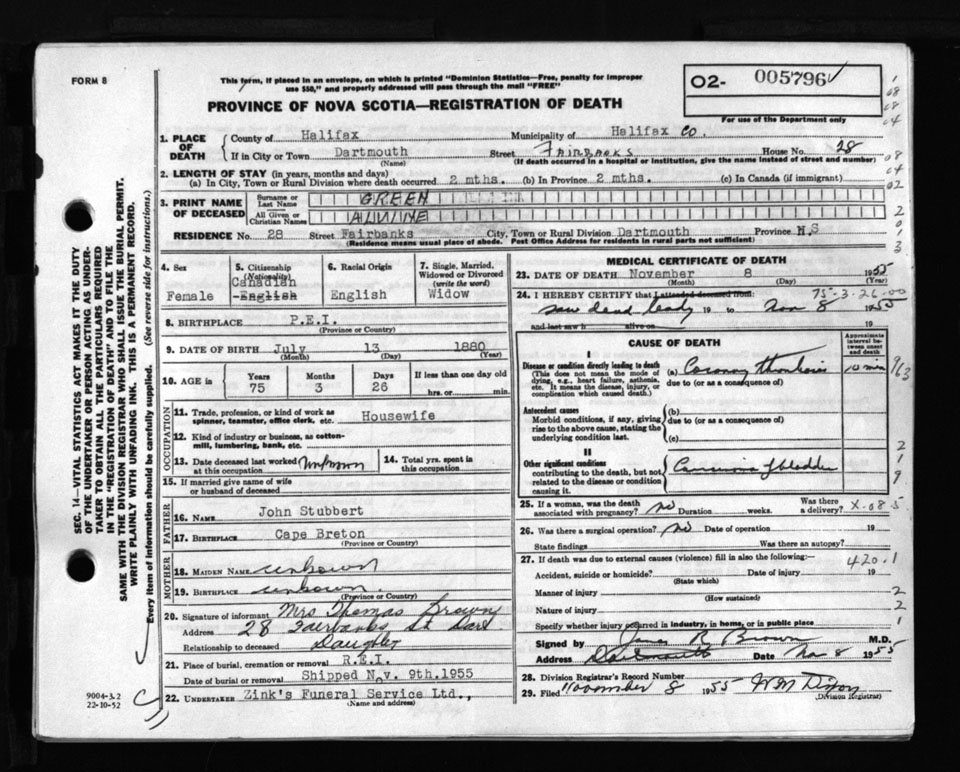 FORM 8
This form, if placed in an envelope, on which is printed "Dominion Statistics—Free, penalty for improper
use $50," and properly addressed will pass through the mail "FREE"
PROVINCE OF NOVA SCOTIA—REGISTRATION OF DEATH
O2- 005796
For use of the Department only
1. PLACE OF DEATH
County of Halifax Municipality of Halifax Co.
If in City or Town Dartmouth Street FAIRBANKS House No. 28
(Name) (If death occurred in a hospital or institution, give the name instead of street and number)
2. LENGTH OF STAY (in years, months and days)
(a) In City, Town or Rural Division where death occurred 2 mths. (b) In Province 2 mths. (c) In Canada (if immigrant)
3. PRINT NAME OF DECEASED
Surname or Last Name GREEN
All Given or Christian Names
RESIDENCE No. 28 Street Fairbanks City, Town or Rural Division Dartmouth Province N.S
(Residence means usual place of abode. Post Office Address for residents in rural parts not sufficient)
4. Sex
Female
5. Citizenship
(Nationality)
Canadian
English
6. Racial Origin
English
7. Single, Married, Widowed or Divorced
(write the word)
Widow
8. BIRTHPLACE P.E.I.
(Province or Country)
9. DATE OF BIRTH July 13 1880
(Month) (Day) (Year)
10. AGE in
Years Months Days If less than one day old
75 3 26 hrs. or min.
OCCUPATION
11. Trade, profession, or kind of work as spinner, teamster, office clerk, etc. Housewife
12. Kind of industry or business, as cotton-mill, lumbering, bank, etc.
13. Date deceased last worked at this occupation Unknown
14. Total yrs. spent in this occupation
15. If married give name of wife or husband of deceased
FATHER
16. NAME John Stubbert
17. BIRTHPLACE Cape Breton
(Province or Country)
MOTHER
18. MAIDEN NAME unknown
19. BIRTHPLACE unknown
(Province or Country)
20. Signature of informant Mrs Thomas Brown
Address 28 Fairbanks St. Dart
Relationship to deceased Daughter
21. Place of burial, cremation or removal P.E.I.
Date of burial, cremation or removal Shipped Nov. 9th.1955
22. UNDERTAKER Zink's Funeral Service Ltd.,
(Name and address)
MEDICAL CERTIFICATE OF DEATH
23. DATE OF DEATH November 8 1955
(Month) (Day) (Year)
75-3-26-00
24. I HEREBY CERTIFY that I attended deceased from:
saw dead body 19 to Nov 8 1955
and last saw h alive on 19
CAUSE OF DEATH
Approximate interval between onset and death
I
Disease or condition directly leading to death
(This does not mean the mode of dying, e.g., heart failure, asthenia, etc. It means the disease, injury, or complication which caused death.)
(a) Coronary thrombosis 10 min
due to (or as a consequence of)
Antecedent causes
Morbid conditions, if any, giving rise to the above cause, stating the underlying condition last.
(b)
due to (or as a consequence of)
(c)
II
Other significant conditions
contributing to the death, but not related to the disease or condition causing it.
Carcinoma of bladder
25. If a woman, was the death associated with pregnancy? no Duration weeks. Was there a delivery? X-08-5
26. Was there a surgical operation? no Date of operation 19
State findings Was there an autopsy?
27. If death was due to external causes (violence) fill in also the following:— 420.1
Accident, suicide or homicide? Date of injury 19
(State which)
Manner of injury
(How sustained)
Nature of injury
Specify whether injury occurred in industry, in home, or in public place
Signed by James R Brown M.D.
Address Dartmouth Date Nov 8 1955
28. Division Registrar's Record Number
29. Filed November 8 1955 W M Dixon
(Division Registrar)
SEC. 14—VITAL STATISTICS ACT MAKES IT THE DUTY
OF THE UNDERTAKER OR PERSON ACTING AS UNDER-
TAKER TO OBTAIN ALL THE PARTICULARS REQUIRED
IN THE "REGISTRATION OF DEATH" AND TO FILE THE
SAME WITH THE DIVISION REGISTRAR WHO SHALL ISSUE THE BURIAL PERMIT.
WRITE PLAINLY WITH UNFADING INK. THIS IS A PERMANENT RECORD.
Every item of information should be carefully supplied. (See reverse side for instructions.)
9004-3.2
22-10-52